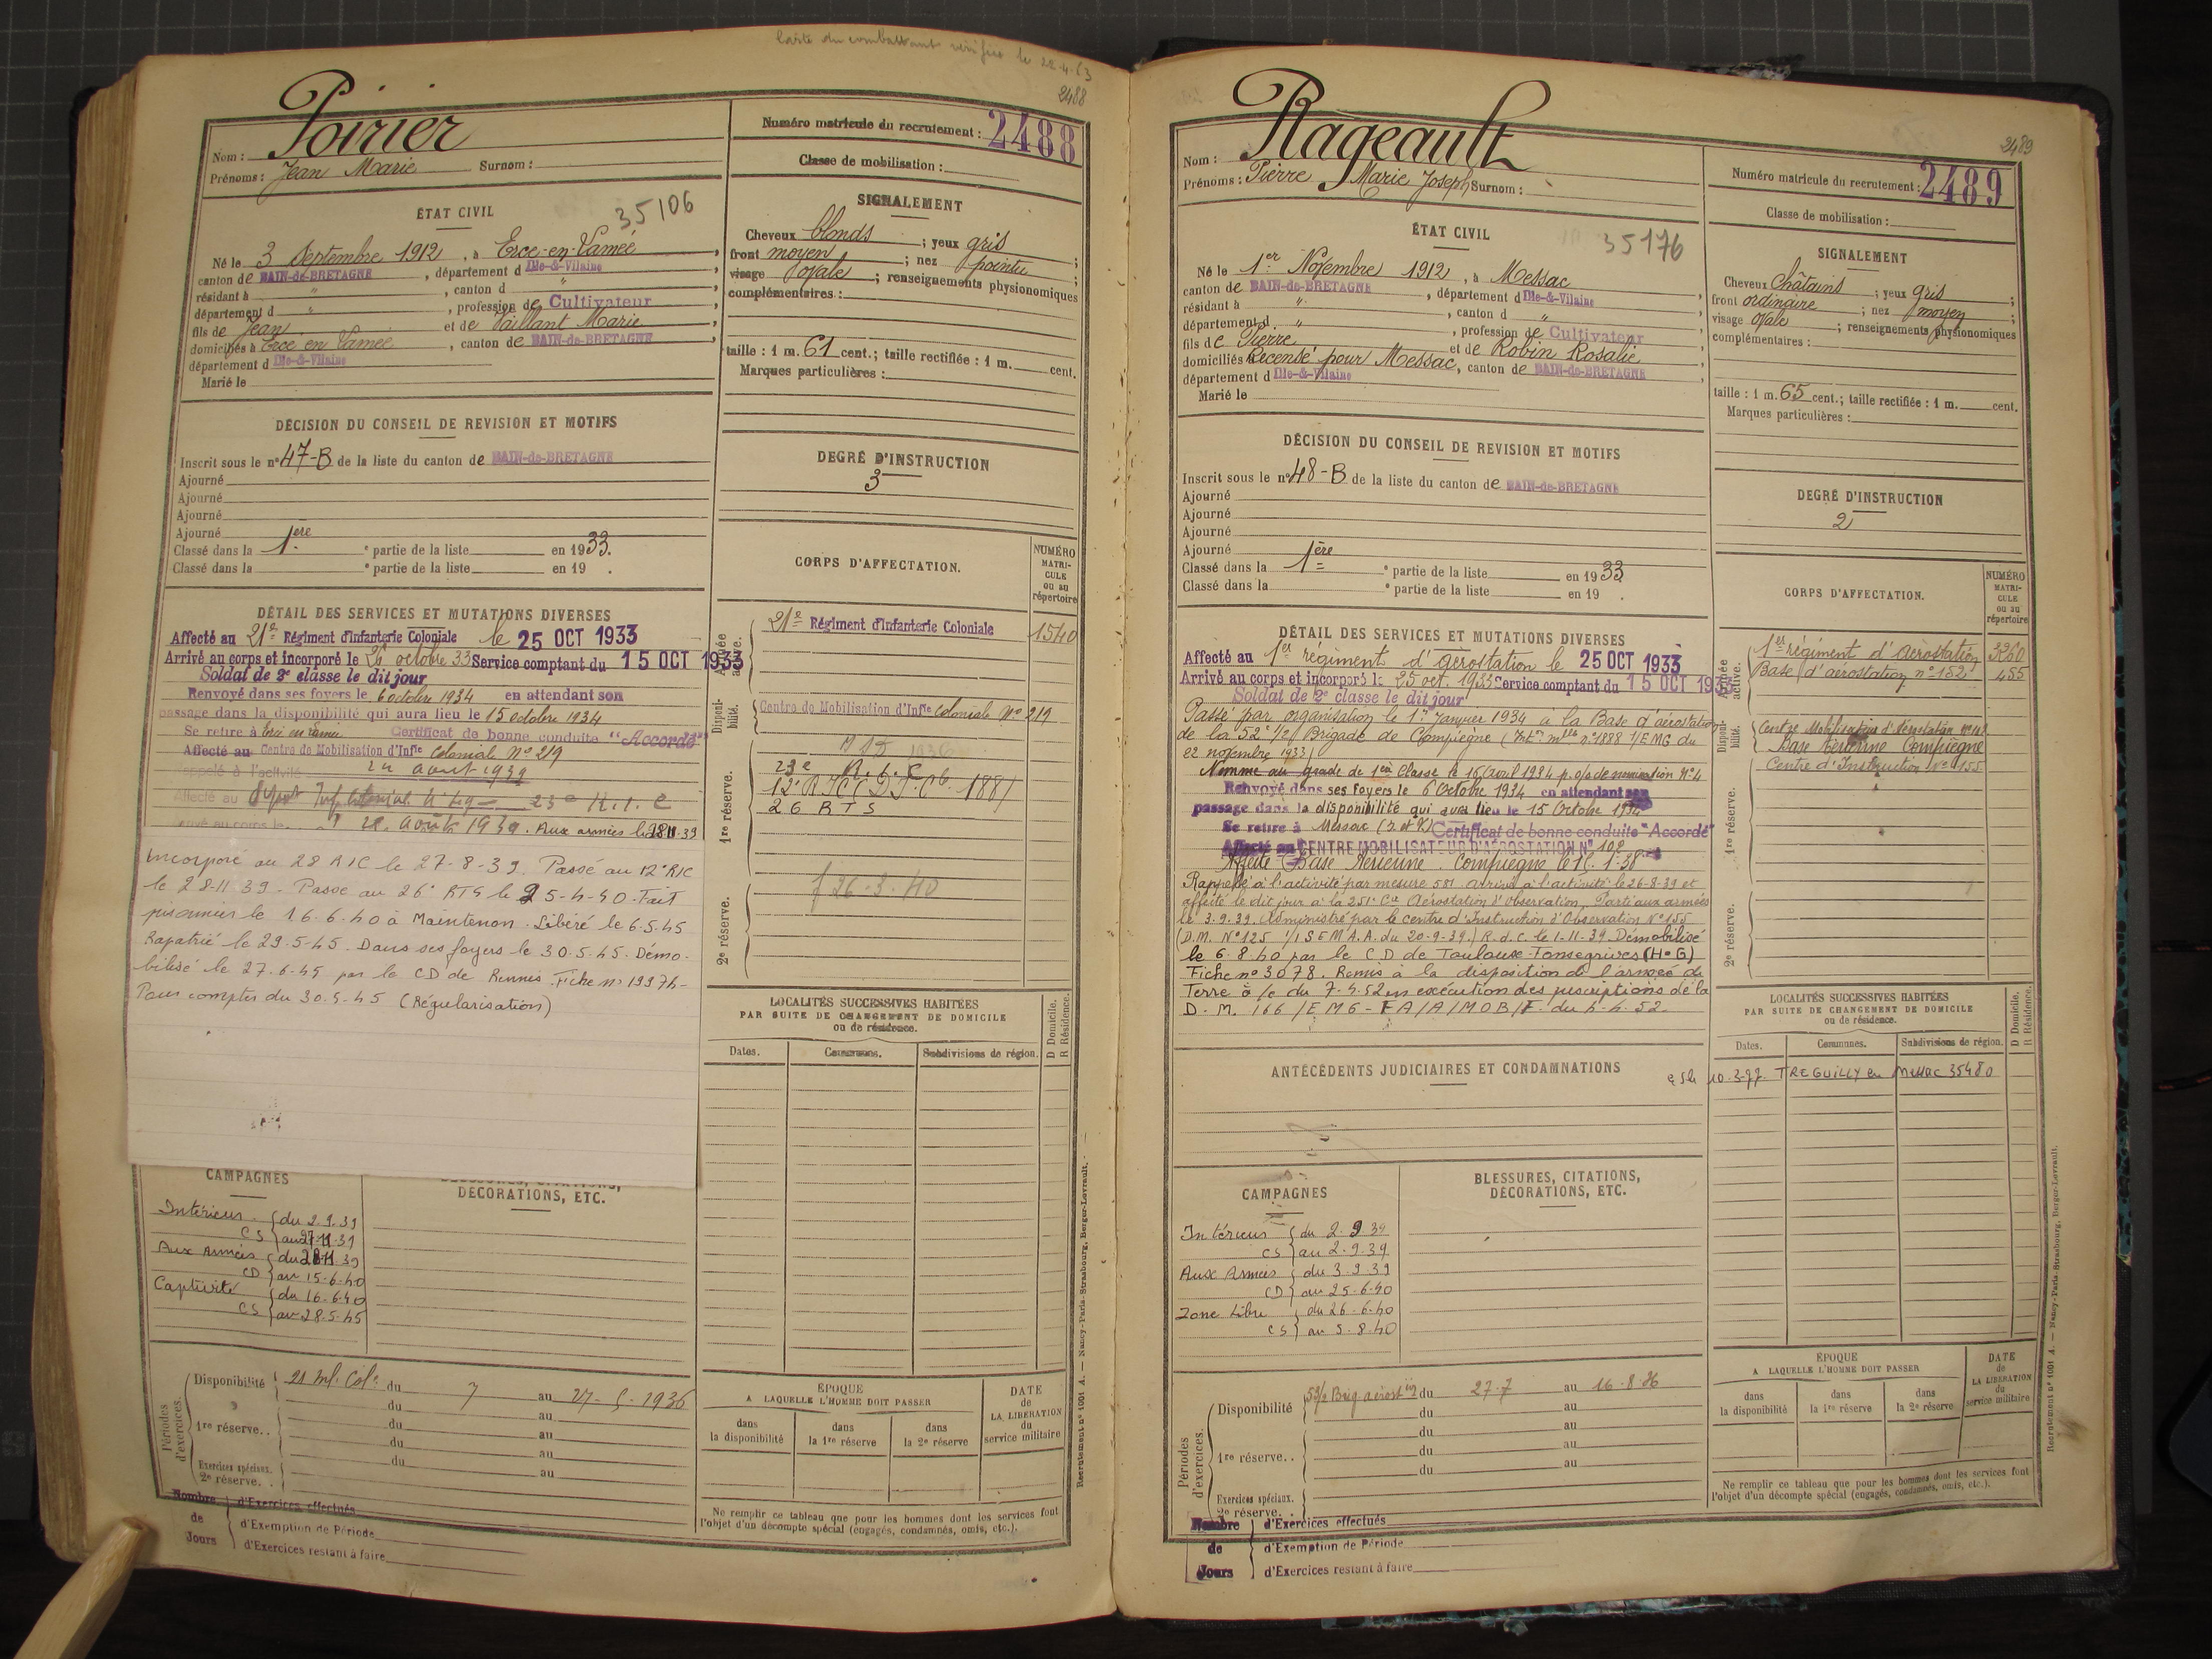 Carte du combattant vérifiée le 22-4-63
2488
Nom : Poirier
Prénoms : Jean Marie Surnom :
Numéro matricule du recrutement : 2488
Classe de mobilisation :
ÉTAT CIVIL
35106
Né le 3 Septembre 1912, à Erce-en-Lamée
canton de BAIN-de-BRETAGNE, département d Ille-&-Vilaine
résidant à " , canton d "
département d " , profession de Cultivateur
fils de Jean et de Vaillant Marie
domiciliés à Erce en Lamée, canton de BAIN-de-BRETAGNE
département d Ille-&-Vilaine
Marié le
SIGNALEMENT
Cheveux blonds ; yeux gris
front moyen ; nez pointu ;
visage ovale ; renseignements physionomiques
complémentaires :
taille : 1 m. 61 cent.; taille rectifiée : 1 m. cent.
Marques particulières :
DÉCISION DU CONSEIL DE REVISION ET MOTIFS
Inscrit sous le n° 47-B de la liste du canton de BAIN-de-BRETAGNE
Ajourné
Ajourné
Ajourné
Ajourné
Classé dans la 1ere ° partie de la liste en 1933.
Classé dans la ° partie de la liste en 19 .
DEGRÉ D'INSTRUCTION
3
DÉTAIL DES SERVICES ET MUTATIONS DIVERSES
Affecté au 21e Régiment d'Infanterie Coloniale le 25 OCT 1933
Arrivé au corps et incorporé le 26 octobre 33 Service comptant du 15 OCT 1933
Soldat de 2e classe le dit jour
Renvoyé dans ses foyers le 6 octobre 1934 en attendant son
passage dans la disponibilité qui aura lieu le 15 octobre 1934
Se retire à Ercé en Lamée Certificat de bonne conduite "Accordé"
Affecté au Centre de Mobilisation d'Infie Coloniale N° 219
Rappelé à l'activité 24 août 1939
Affecté au Dépôt Inf. Colonial 23e R.I.C
août 1939. Aux armées le 28 11 39
Incorporé au 28 RIC le 27-8-39. Passé au 12e RIC
le 28-11 39 - Passé au 26e RTS le 25-4-40. Fait
prisonnier le 16.6.40 à Maintenon. Libéré le 6.5.45
Rapatrié le 29.5-45. Dans ses foyers le 30.5.45. Démo-
bilisé le 27.6.45 par le CD de Rennes. Fiche n°
Pour compter du 30.5-45 (Régularisation)
CORPS D'AFFECTATION.
NUMÉRO MATRI-CULE ou au répertoire
Armée active.
21e Régiment d'Infanterie Coloniale 1540
Disponi-bilité.
Centre de Mobilisation d'Infie Coloniale N° 219
1re réserve.
23e R.I.C
26 R T S
2e réserve.
26-3-40
LOCALITÉS SUCCESSIVES HABITÉES
PAR SUITE DE CHANGEMENT DE DOMICILE
ou de résidence.
D Domicile.
R Résidence.
Dates. Communes. Subdivisions de région.
CAMPAGNES
Intérieur CS du 2.9.39
au 27-11-39
Aux Armées CD du 28-11-39
au 15-6-40
Captivité CS du 16-6-40
au 28-5-45
BLESSURES, CITATIONS,
DÉCORATIONS, ETC.
Périodes d'exercices.
Disponibilité 21 Inf. Cole du 7 au 27-5-1936
du au
1re réserve.. du au
du au
du au
Exercices spéciaux.
2e réserve. . au
Nombre de Jours
d'Exercices effectués
d'Exemption de Période
d'Exercices restant à faire
ÉPOQUE
A LAQUELLE L'HOMME DOIT PASSER
dans la disponibilité
dans la 1re réserve
dans la 2e réserve
DATE de LA LIBÉRATION du service militaire
Ne remplir ce tableau que pour les hommes dont les services font
l'objet d'un décompte spécial (engagés, condamnés, omis, etc.).
Recrutement n° 1001 A. — Nancy-Paris-Strasbourg, Berger-Levrault.
2489
Nom : Rageault
Prénoms : Pierre Marie Joseph Surnom :
Numéro matricule du recrutement : 2489
Classe de mobilisation :
ÉTAT CIVIL
35176
Né le 1er Novembre 1912, à Messac
canton de BAIN-de-BRETAGNE, département d Ille-&-Vilaine
résidant à " , canton d "
département d " , profession de Cultivateur
fils de Pierre et de Robin Rosalie
domiciliés Recensé pour Messac, canton de BAIN-de-BRETAGNE
département d Ille-&-Vilaine
Marié le
SIGNALEMENT
Cheveux châtains ; yeux gris
front ordinaire ; nez moyen ;
visage ovale ; renseignements physionomiques
complémentaires :
taille : 1 m. 65 cent.; taille rectifiée : 1 m. cent.
Marques particulières :
DÉCISION DU CONSEIL DE REVISION ET MOTIFS
Inscrit sous le n° 48-B de la liste du canton de BAIN-de-BRETAGNE
Ajourné
Ajourné
Ajourné
Ajourné
Classé dans la 1ère ° partie de la liste en 1933
Classé dans la ° partie de la liste en 19 .
DEGRÉ D'INSTRUCTION
2
DÉTAIL DES SERVICES ET MUTATIONS DIVERSES
Affecté au 1er régiment d'aérostation le 25 OCT 1933
Arrivé au corps et incorporé le 25 oct. 1933 Service comptant du 15 OCT 1933
Soldat de 2e classe le dit jour
Passé par organisation le 1er Janvier 1934 à la Base d'aérostation
de la 52e 1/2 Brigade de Compiègne (Inton mlle n° 1888 1/EMG du
22 novembre 1933)
Nommé au grade de 1ère Classe le 16 avril 1934 p. o/o de nomination N°4
Renvoyé dans ses foyers le 6 Octobre 1934 en attendant son
passage dans la disponibilité qui aura lieu le 15 Octobre 1934
Se retire à Messac (I. et V.) Certificat de bonne conduite "Accordé"
Affecté au CENTRE MOBILISATEUR D'AÉROSTATION N° 102
Affecté Base Aérienne Compiègne le 15. 1-38
Rappelé à l'activité par mesure 581 arrivé à l'activité le 26-8-39 et
affecté le dit jour à la 251e Cie Aérostation d'observation. Parti aux armées
le 3.9.39. Administré par le centre d'Instruction d'Observation N° 155
(D.M. N° 125 1/1 S E M A.A. du 20-9-39.) R.d.C. le 1-11-39. Démobilisé
le 6.8.40 par le C D de Toulouse-Fonsegrives (H-G)
Fiche n° 3078. Remis à la disposition de l'armée de
Terre à /c du 7-4.52 en exécution des prescriptions de la
D. M. 166 /E M G - F A /A /M O B /F du 4-4-52.
CORPS D'AFFECTATION.
NUMÉRO MATRI-CULE ou au répertoire
Armée active.
1er régiment d'aérostation 3260
Base d'aérostation n° 152 455
Disponi-bilité.
Centre Mobilisateur d'Aérostation N° 102
Base Aérienne Compiègne
1re réserve.
Centre d'Instruction N° 155
2e réserve.
ANTÉCÉDENTS JUDICIAIRES ET CONDAMNATIONS
LOCALITÉS SUCCESSIVES HABITÉES
PAR SUITE DE CHANGEMENT DE DOMICILE
ou de résidence.
D Domicile.
R Résidence.
Dates. Communes. Subdivisions de région.
10-3-97 TREGUILLY en Messac 35480
CAMPAGNES
Intérieur CS du 2-9 39
au 2-9.39
Aux Armées CD du 3-9 39
au 25-6-40
Zone Libre CS du 26-6-40
au 5-8-40
BLESSURES, CITATIONS,
DÉCORATIONS, ETC.
Périodes d'exercices.
Disponibilité 52 1/2 Brig aérost ion du 27-7 au 16-8-36
du au
du au
1re réserve. . du au
du au
Exercices spéciaux.
2e réserve. .
Nombre de Jours
d'Exercices effectués
d'Exemption de Période
d'Exercices restant à faire
ÉPOQUE
A LAQUELLE L'HOMME DOIT PASSER
dans la disponibilité
dans la 1re réserve
dans la 2e réserve
DATE de LA LIBÉRATION du service militaire
Ne remplir ce tableau que pour les hommes dont les services font
l'objet d'un décompte spécial (engagés, condamnés, omis, etc.).
Recrutement n° 1001 A. — Nancy-Paris-Strasbourg, Berger-Levrault.